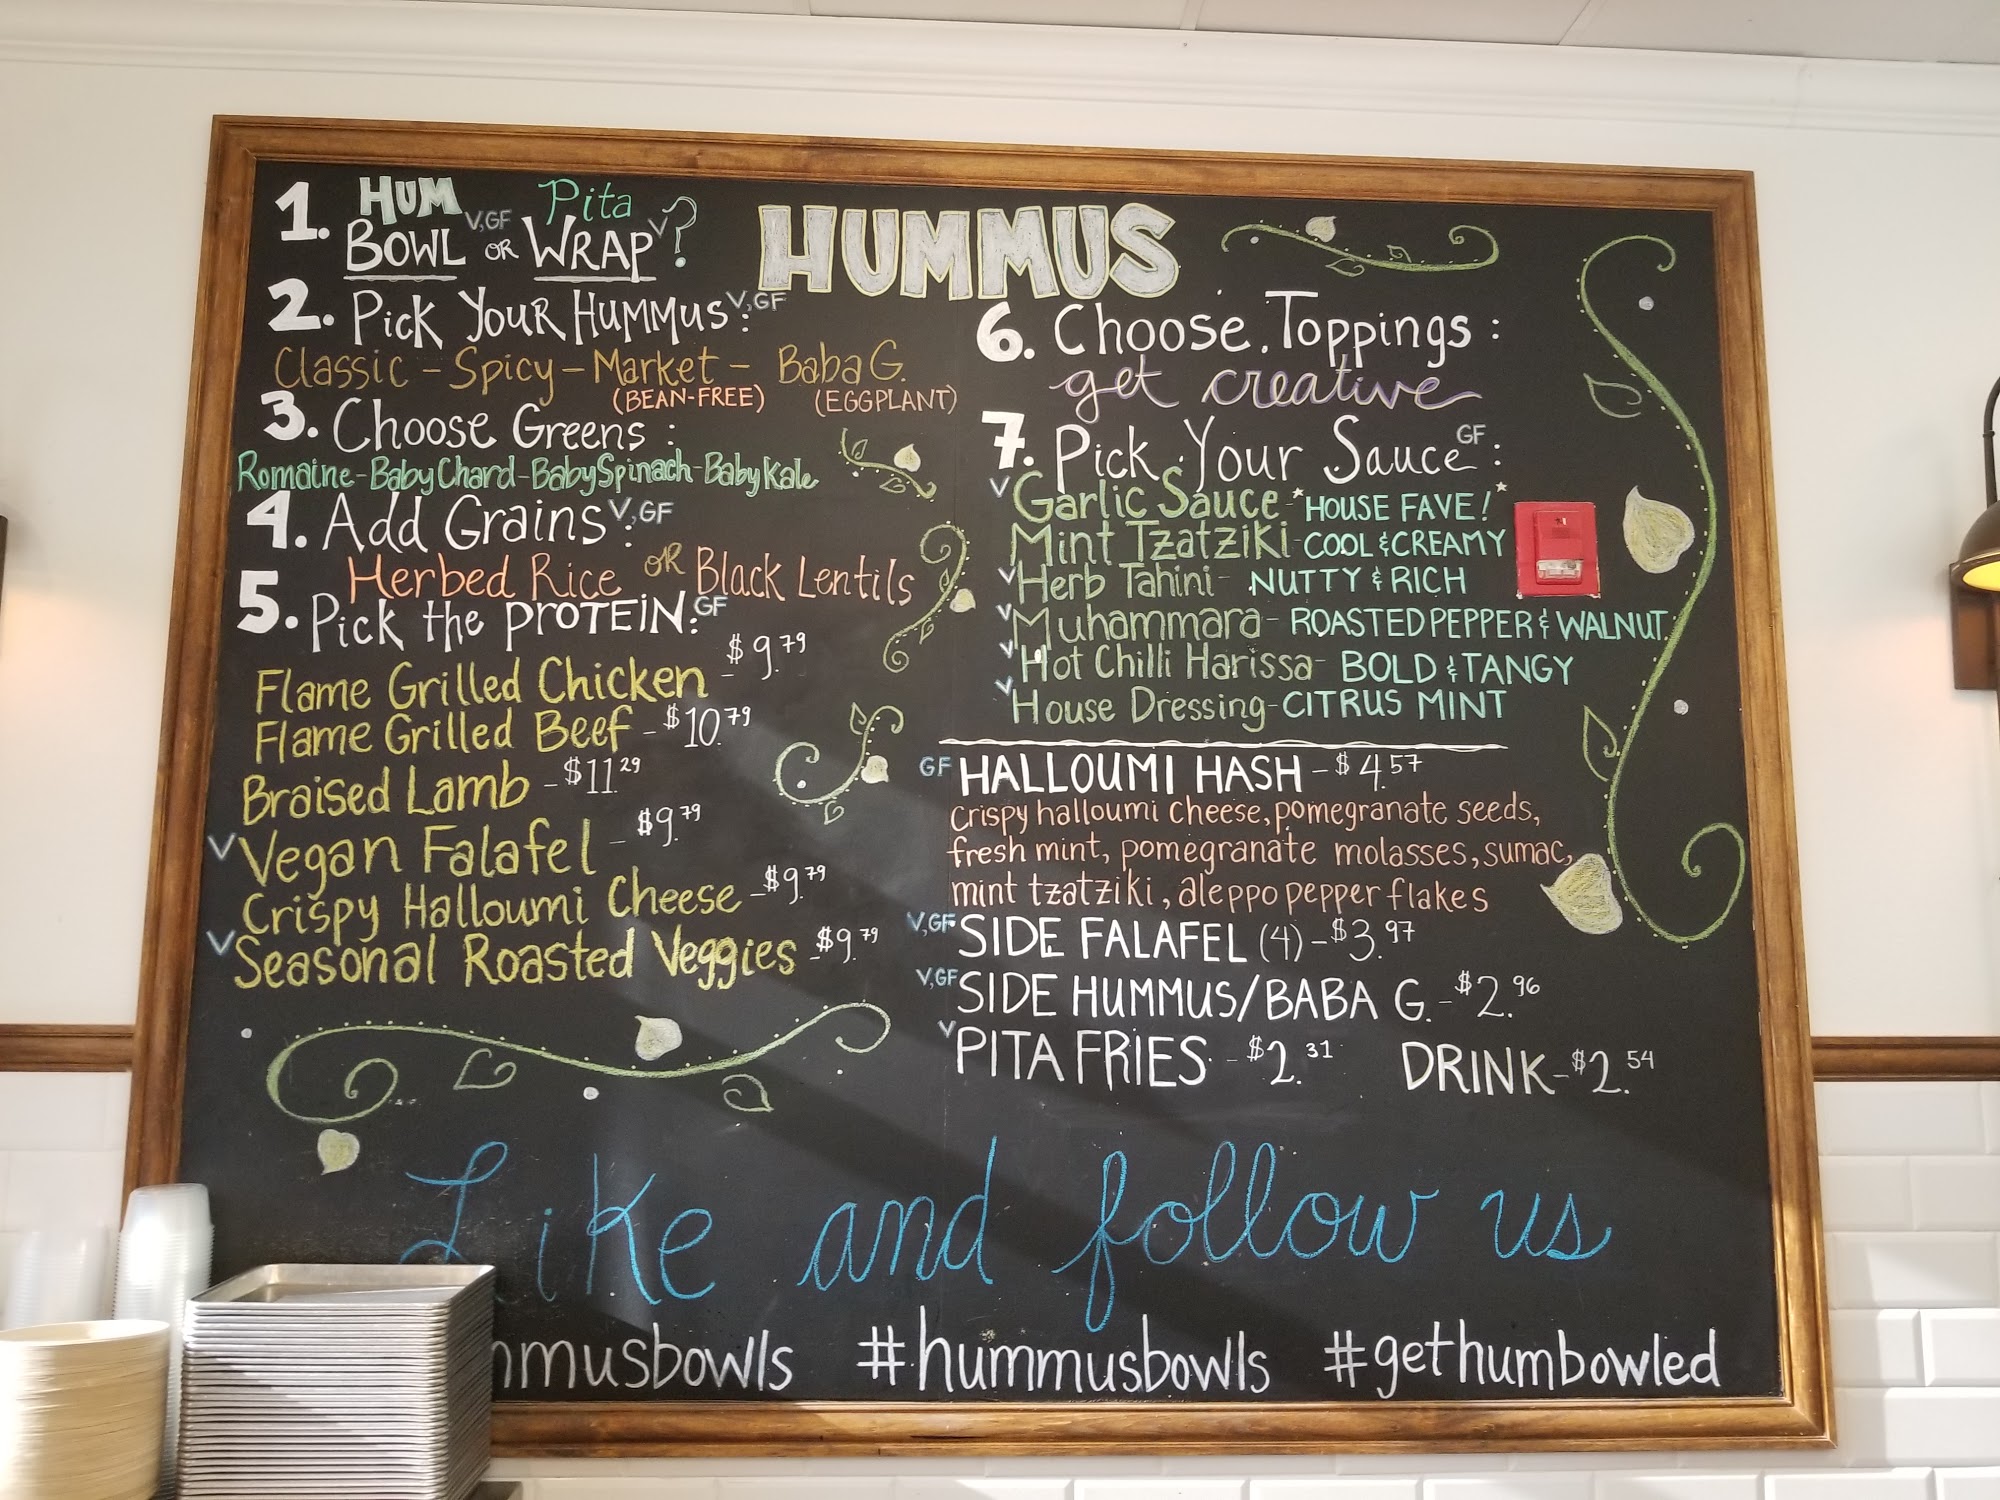 HUMMUS
1. HUM BOWL V,GF OR Pita WRAP V?
2. Pick Your Hummus V,GF:
Classic - Spicy - Market - Baba G.
(BEAN-FREE) (EGGPLANT)
3. Choose Greens:
Romaine-Baby Chard-Baby Spinach-Baby Kale
4. Add Grains V,GF:
Herbed Rice OR Black Lentils
5. Pick the PROTEIN: GF
Flame Grilled Chicken - $9.79
Flame Grilled Beef - $10.79
Braised Lamb - $11.29
V Vegan Falafel - $9.79
Crispy Halloumi Cheese - $9.79
V Seasonal Roasted Veggies - $9.79
6. Choose Toppings:
get creative
7. Pick Your Sauce GF:
V Garlic Sauce - *HOUSE FAVE!*
Mint Tzatziki - COOL & CREAMY
V Herb Tahini - NUTTY & RICH
V Muhammara - ROASTED PEPPER & WALNUT
V Hot Chilli Harissa - BOLD & TANGY
V House Dressing - CITRUS MINT
GF HALLOUMI HASH - $4.57
crispy halloumi cheese, pomegranate seeds,
fresh mint, pomegranate molasses, sumac,
mint tzatziki, aleppo pepper flakes
V,GF SIDE FALAFEL (4) - $3.97
V,GF SIDE HUMMUS/BABA G. - $2.96
V PITA FRIES - $2.31 DRINK - $2.54
Like and follow us
mmusbowls #hummusbowls #gethumbowled